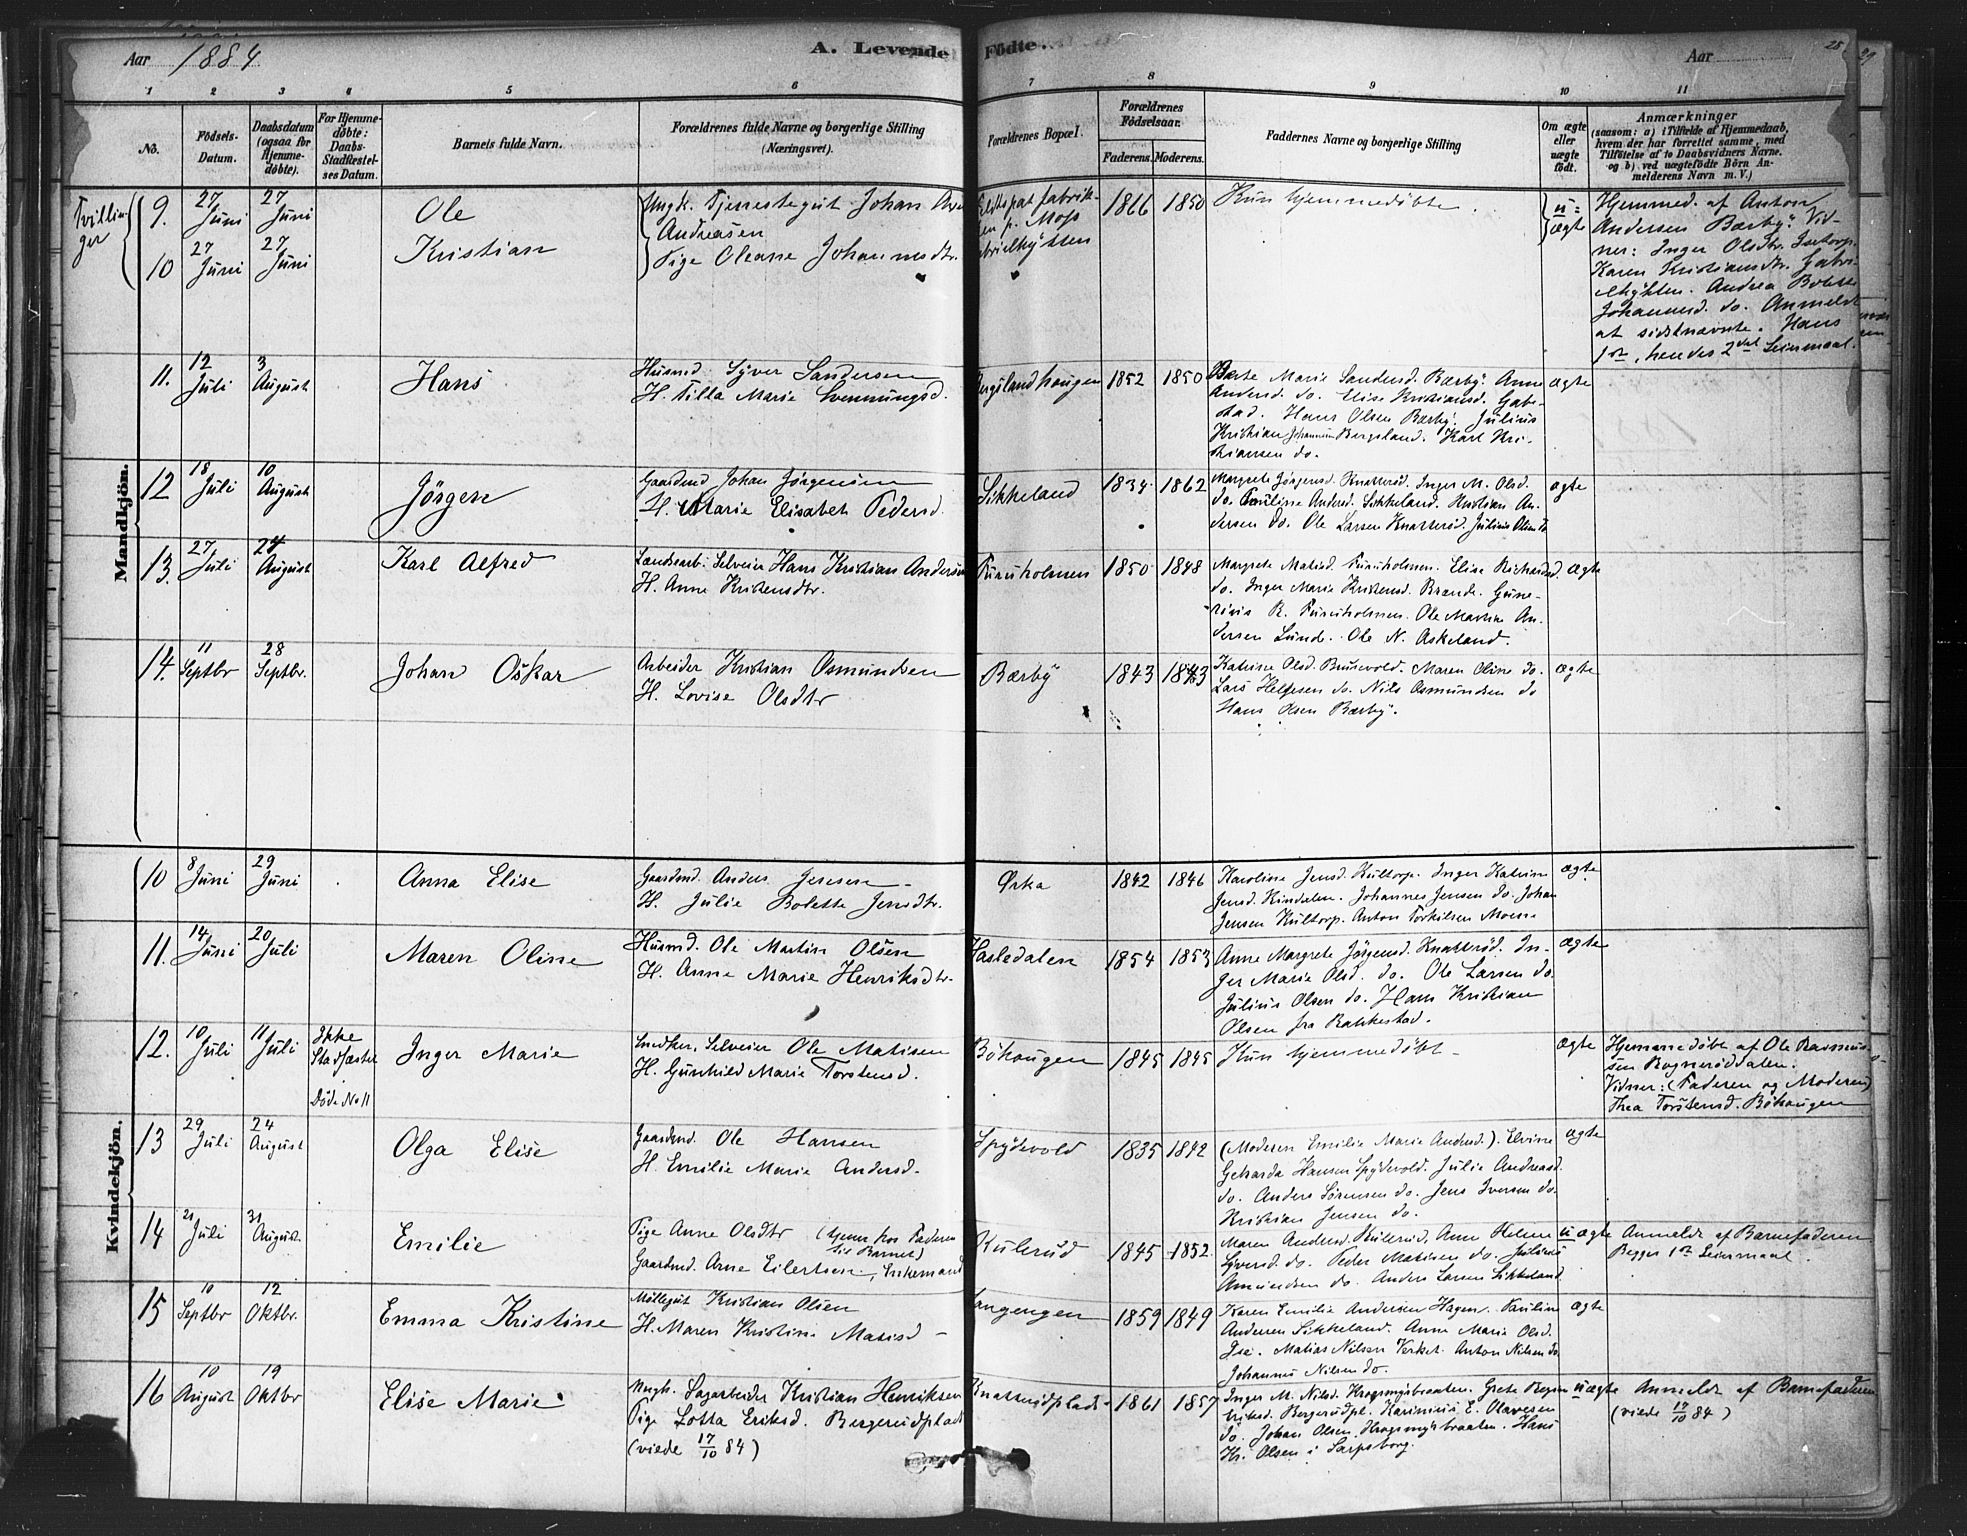 Aar 1884
A. Levende Födte.
Aar
25
29
1 2 3 4 5 6 7 8 9 10 11
No.
Födsels-Datum.
Daabsdatum (ogsaa for Hjemme-døbte).
For Hjemme-døbte: Daabs-Stadfæstel-ses Datum.
Barnets fulde Navn.
Forældrenes fulde Navne og borgerlige Stilling (Næringsvei).
Forældrenes Bopæl.
Forældrenes Födselsaar.
Faderens. Moderens.
Faddernes Navne og borgerlige Stilling
Om ægte eller uægte født.
Anmærkninger
(saasom: a) i Tilfælde af Hjemmedaab,
hvem der har forrettet samme, med
Tilføielse af to Daabsvidners Navne.
og b) ved uægtefödte Börn An-
melderens Navn m. V.)
Mandkjön.
Tvillin-
ger
9. 27 Juni 27 Juni Ole
10 27 Juni 27 Juni Kristian
Ungk. Tjenestegut Johan
Andreasen
Pige Oleane Johannesdtr.
Feldtspatfabrik-
en p. Moss
1866 1850 Kun hjemmedøbte. u = ægte
Hjemmed. af Anton
Andersen Bærby. Vid-
ner: Inger Olsdtr.
Karen Kristiansdtr. Gabri-
elhytten. Andrea Bolette
Johannesd. do. Anmeldt
at sidstnævnte. Hans
1ste, hendes 2det Leiermaal.
11. 12 Juli 3 August Hans
Husmd. Syver Sandersen
H. Tilla Marie Svenningsd.
Bergslandhaugen 1852 1850
Berte Marie Sandersd. Bærby. Anne
Andersd. do. Elise Kristiansd. Gabe-
stad. Hans Olsen Bærby. Julius
Kristian Johannesen Bergsland. Karl Kri-
stiansen do.
ægte
12 18 Juli 10 August Jørgen
Gaardmd Johan Jørgensen
H. Marie Elisabet Pedersd.
Sikkeland 1834 1862
Margrete Jørgensd. Knatterød. Inger M. Olsd.
do. Pauline Andersd. Sikkeland. Kristian An-
dersen do. Ole Larsen Knatterød. Julius Olsen do
ægte
13. 27 Juli 24 August Karl Alfred
Landarb. Selveier Hans Kristian Andersen
H. Anne Kristensdtr.
Furuholmen 1850 1848
Margrete Matisd. Furuholmen. Elise Richardsd.
do. Inger Marie Kristensd. Brande. Gune-
rius R. Furuholmen. Ole Martin An-
dersen Lunde. Ole N. Askeland.
ægte
14. 11 Septbr 28 Septbr. Johan Oskar
Arbeider Kristian Osmundsen
H. Lovise Olsdtr
Bærby 1843 1843
Katrine Olsd. Brusevold. Maren Oline do.
Lars Helgesen do. Nils Osmundsen do
Hans Olsen Bærby.
ægte
Kvindekjön.
10 8 Juni 29 Juni Anna Elise
Gaardmd. Anders Jensen
H. Julie Bolette Jensdtr.
Ørka 1842 1846
Karoline Jensd. Kultorp. Inger Katrine
Jensd. Kindalen. Johannes Jensen do. Johan
Jensen Kultorp. Anton Torkilsen Moen
ægte
11. 14 Juni 20 Juli Maren Oline
Husmd. Ole Martin Olsen
H. Anne Marie Henriksdtr.
Hasledalen 1854 1853
Anne Margrete Jørgensd. Knatterød. In-
ger Marie Olsd. do. Ole Larsen do.
Julius Olsen do. Hans Kristian
Olsen fra Rakkestad.
ægte
12. 10 Juli 11 Juli Ikke Stadfæstet Døde No 11 Inger Marie
Snedker, Selveier Ole Matisen
H. Gunhild Marie Torstensd.
Bøhaugen 1845 1845 Kun hjemmedøbt ægte
Hjemmedøbt af Ole Rasmus-
sen Rognerøddalen.
Vidner: (Faderen og Moderen)
Thea Torstensd. Bøhaugen
13 29 Juli 24 August Olga Elise
Gaardmd. Ole Hansen
H. Emilie Marie Andersd.
Spydevold 1835 1842
(Moderen Emilie Marie Andersd.). Elvine
Geharda Hansen Spydevold. Julie Andreasd.
do. Anders Sørensen do. Jens Iversen do.
Kristian Jensen do.
ægte
14 21 Juli 31 August Emilie
Pige Anne Olsdtr (tjener hos Faderen
til Barnet)
Gaardmd. Arne Eilertsen, Enkemand
Kulerud 1845 1852
Maren Andersd. Kulerud. Anne Helene
Syversd. do. Peder Matisen do. Julius
Amundsen do. Anders Larsen Sikkeland
uægte Anmeldt af Barnefaderen
Begges 1ste Leiermaal.
15 10 Septbr 12 Oktbr. Emma Kristine
Møllegut Kristian Olsen
H. Maren Kristine Matisd
Langengen 1859 1849
Karen Emilie Andersen Hagen. Pauline
Andersen Sikkeland. Anne Marie Olsd.
Ise. Matias Nilsen Verket. Anton Nilsen do
Johannes Nilsen do.
ægte
16 10 August 19 Oktbr Elise Marie
Ungk. Sagarbeider Kristian Henriksen
Pige Lotta Eriksd. Bergerudplads
(viede 17/10 84)
Knatterødplads 1861 1857
Inger M. Nilsd. Krogsmyrbraaten. Grete
Eriksd. Bergerudpl. Karinius E. Olavesen
do. Johan Olsen Krogsmyrbraaten. Hans
Kr. Olsen i Sarpsborg.
uægte Anmeldt af Barnefaderen
(viede 17/10 84)